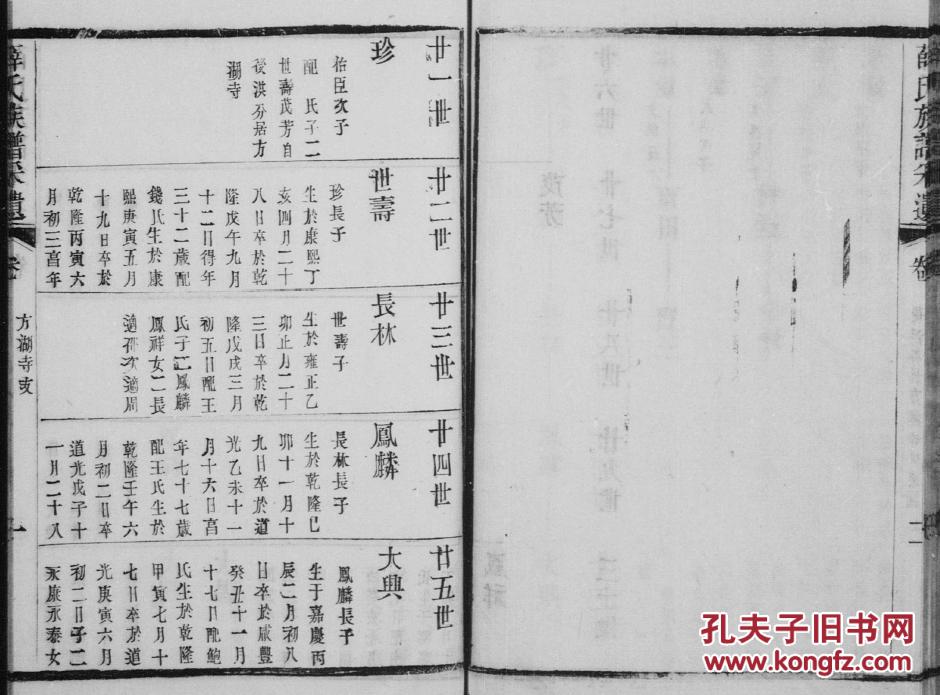 廿一世
珍
佑臣次子
配　氏子二
世壽茂芳自
後洪分居方
湖寺
廿二世
世壽
珍長子
生於康熙丁
亥四月二十
八日卒於乾
隆戊午九月
十二日得年
三十二歲配
錢氏生於康
熙庚寅五月
十九日卒於
乾隆丙寅六
月初三亯年
廿三世
長林
世壽子
生於雍正乙
卯正月二十
三日卒於乾
隆戊戌三月
初五日配王
氏子二鳳麟
鳳祥女二長
適孫次適周
廿四世
鳳麟
長林長子
生於乾隆己
卯十一月十
九日卒於道
光乙未十一
月十六日亯
年七十七歲
配王氏生於
乾隆壬午六
月初二日卒
道光戊子十
一月二十八
廿五世
大興
鳳麟長子
生于嘉慶丙
辰二月初八
日卒於咸豐
癸丑十一月
十七日配鮑
氏生於乾隆
甲寅七月十
七日卒於道
光庚寅六月
初二日子二
永康永泰女
薛氏族譜採遺
卷
方湖寺支
一
薛氏族譜採遺
卷
二
孔夫子旧书网
www.kongfz.com